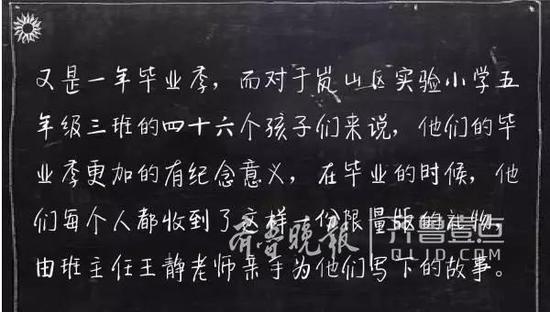 又是一年毕业季，而对于岚山区实验小学五
年级三班的四十六个孩子们来说，他们的毕
业季更加的有纪念意义，在毕业的时候，他
们每个人都收到了这样一份限量版的礼物，
齐鲁晚报 齐鲁壹点
QLJD.COM
由班主任王静老师亲手为他们写下的故事。